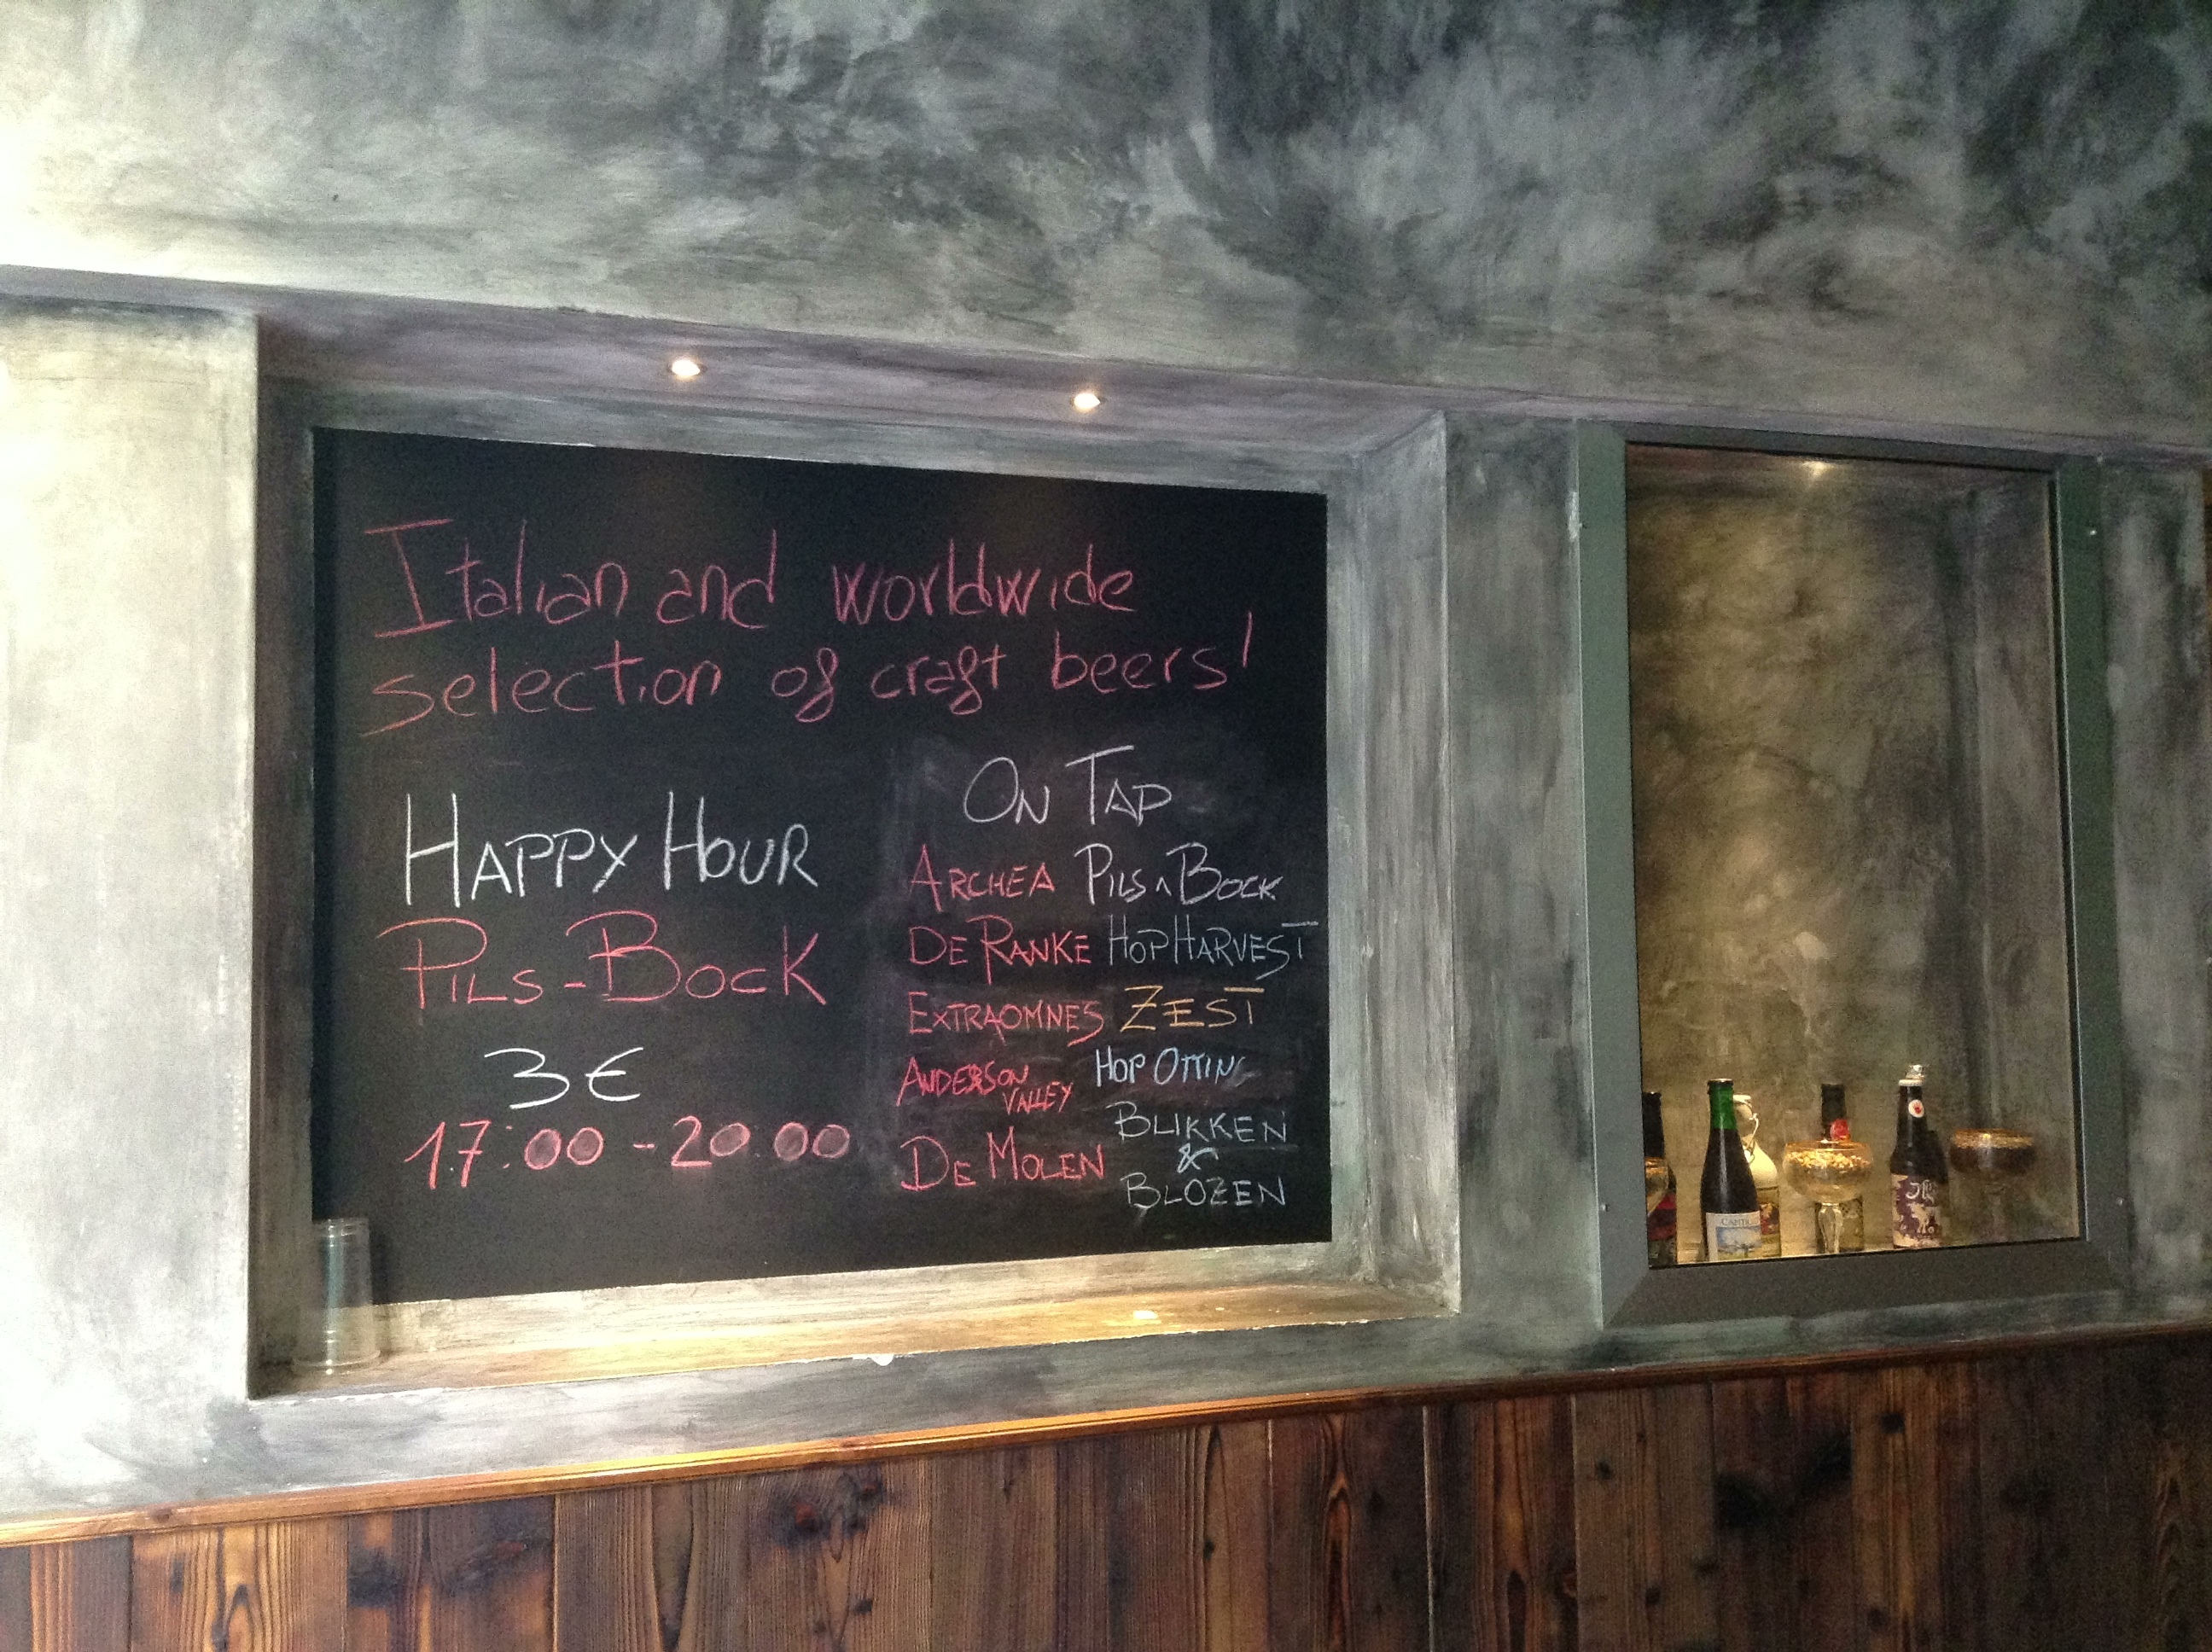 Italian and worldwide
selection of craft beers!
HAPPY HOUR
PILS-BOCK
3€
17:00-20:00
ON TAP
ARCHEA PILS ^ BOCK
DE RANKE HOPHARVEST
EXTRAOMNES ZEST
ANDERSON VALLEY HOP OTTIN
DE MOLEN BLIKKEN
&
BLOZEN